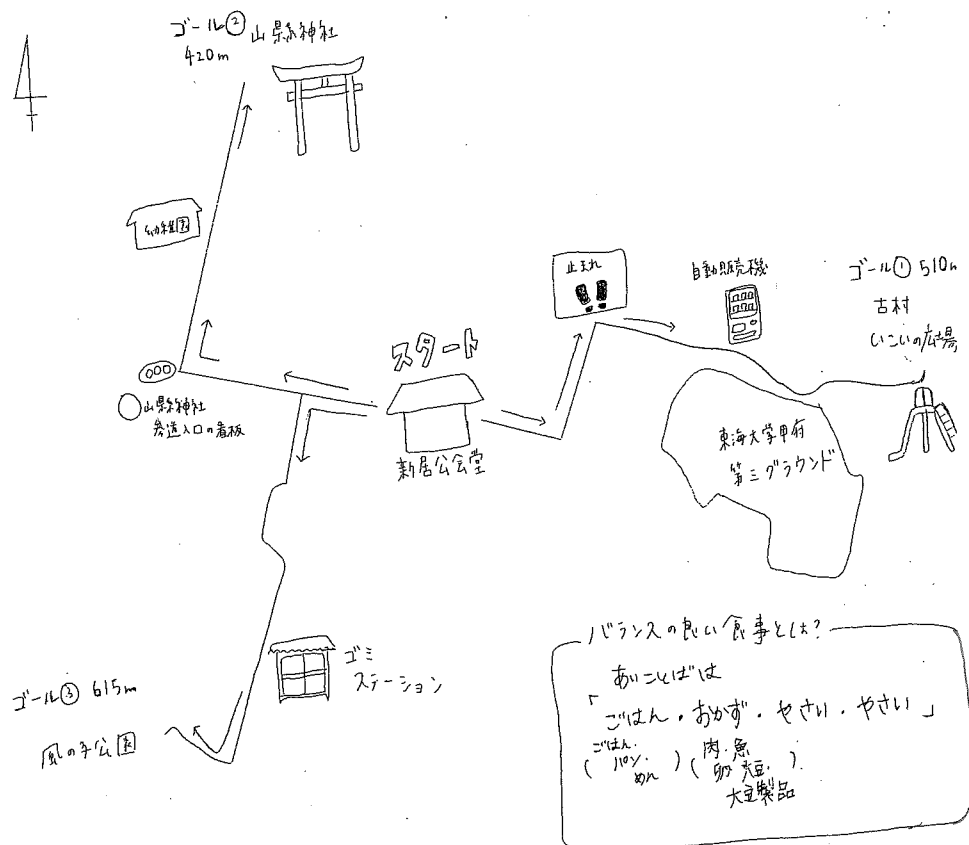 ゴール② 山縣神社
420m
幼稚園
止まれ
自動販売機
ゴール① 510m
古村
いこいの広場
スタート
新居公会堂
○山縣神社
参道入口の看板
東海大学甲府
第三グラウンド
ゴミ
ステーション
ゴール③ 615m
風の子公園
バランスの良い食事とは?
あいことばは
「ごはん・おかず・やさい・やさい」
(ごはん・
パン・
めん)
(肉・魚
卵・大豆・
大豆製品)